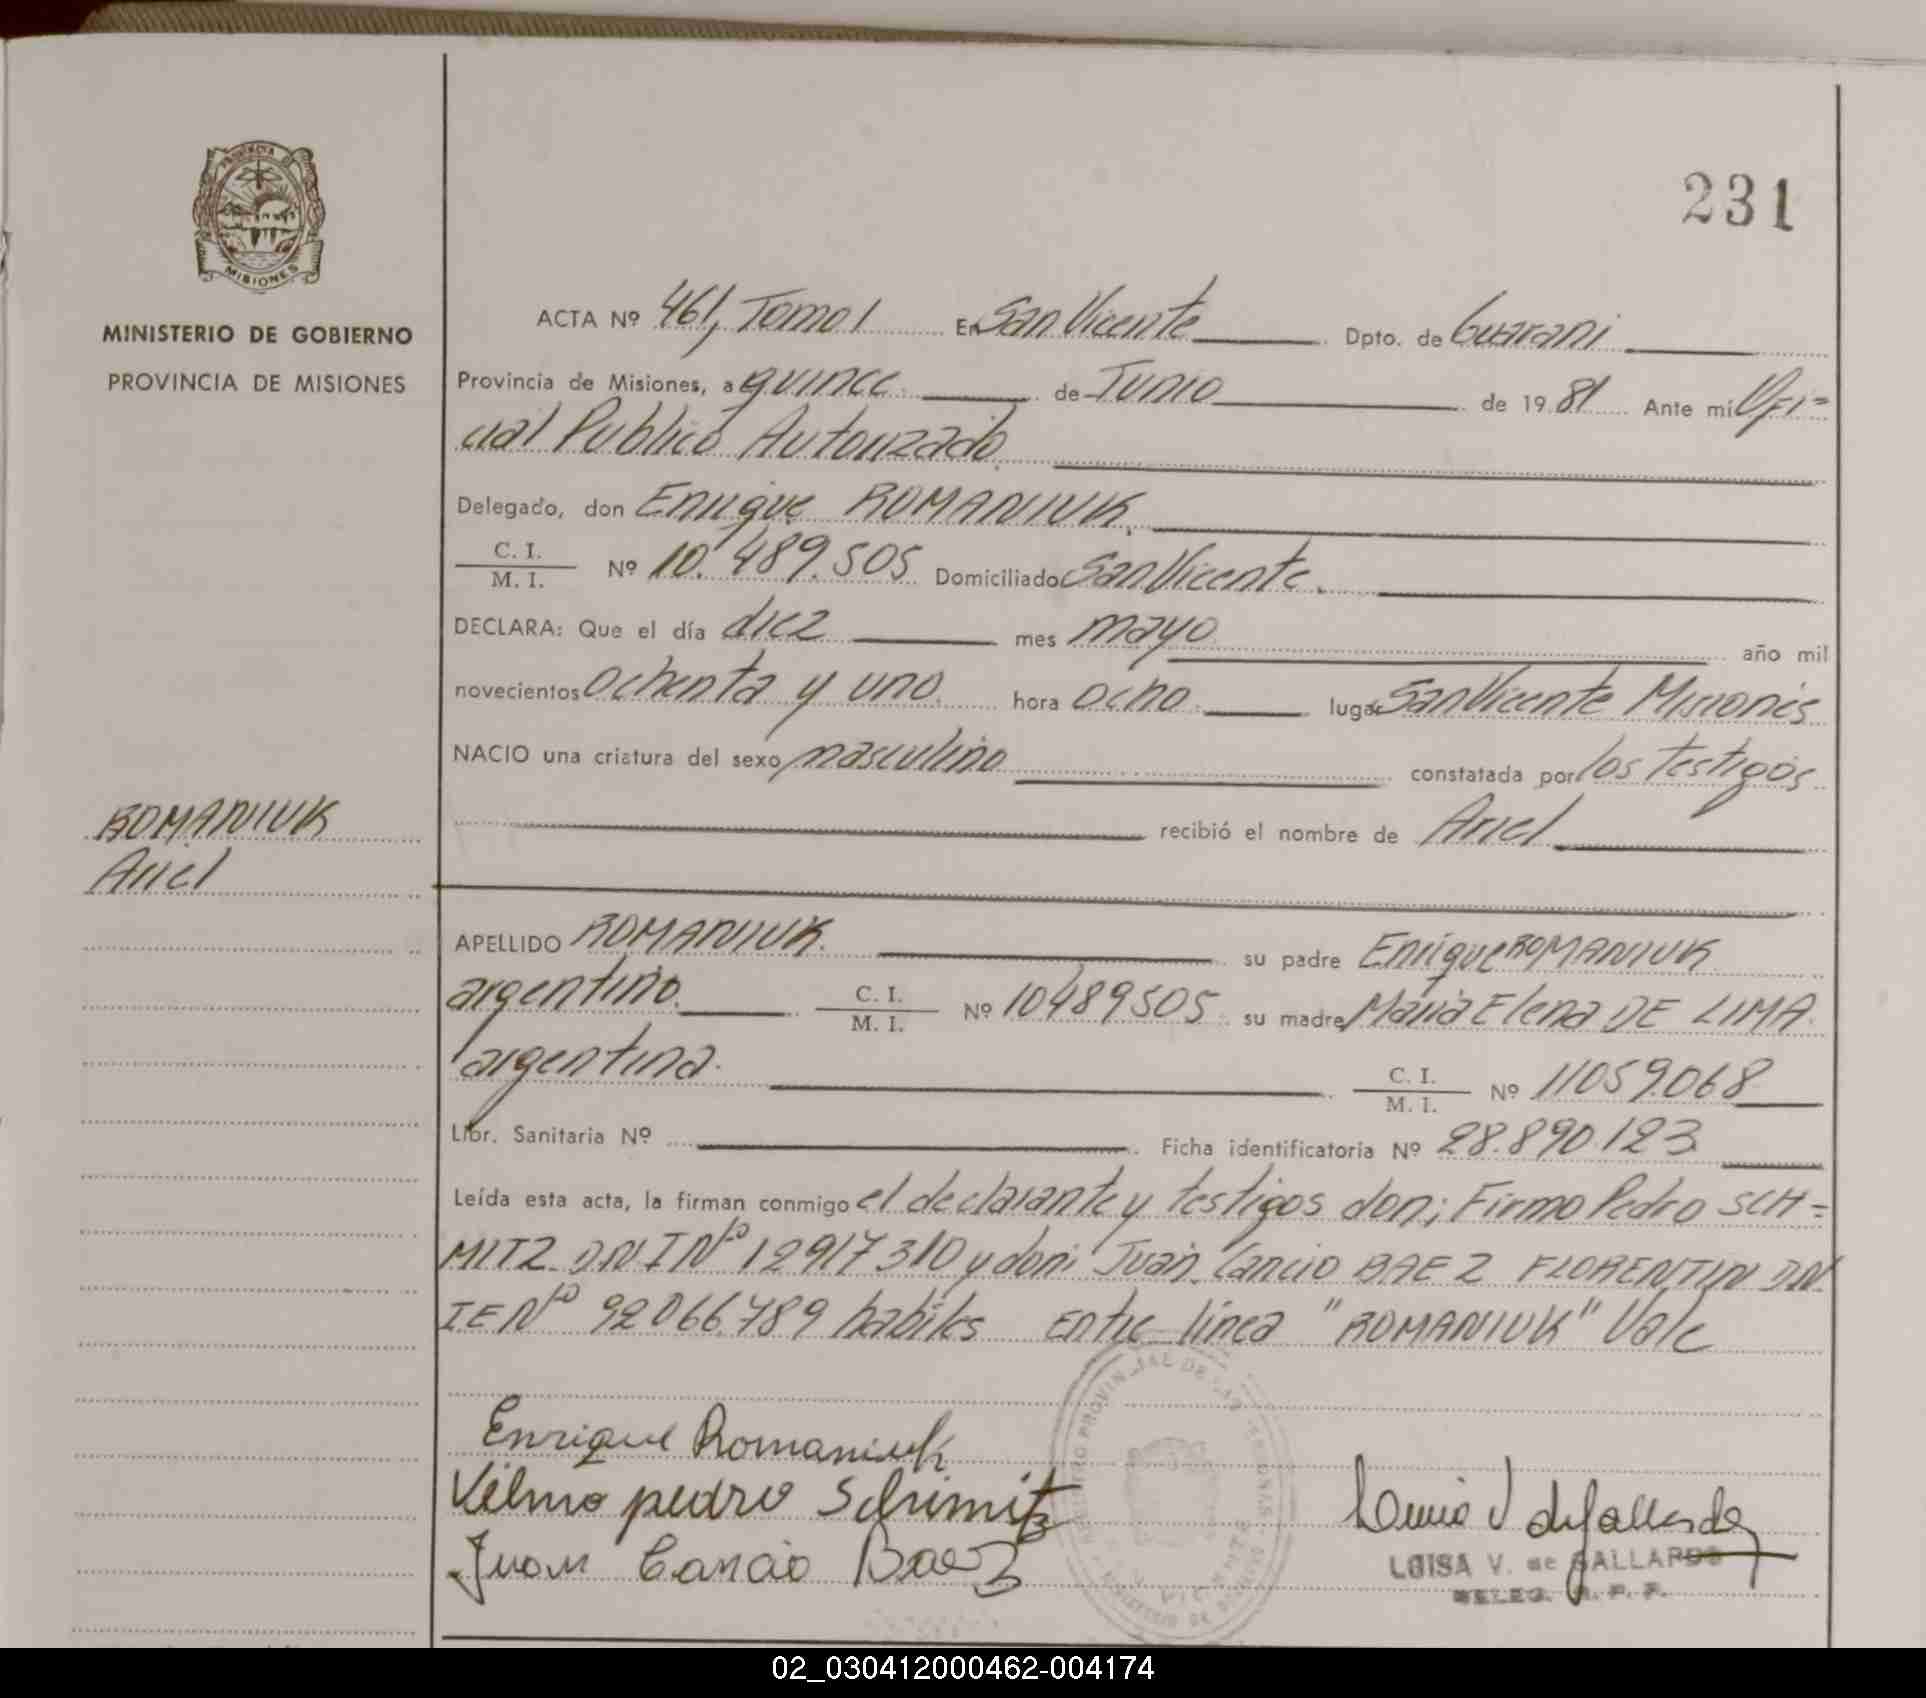 231
PROVINCIA DE
MISIONES
MINISTERIO DE GOBIERNO
PROVINCIA DE MISIONES
ACTA Nº 461, Tomo 1 En San Vicente Dpto. de Guarani
Provincia de Misiones, a quince de Junio de 1981 Ante mi Ofi=
cial Publico Autorizado
Delegado, don Enrique ROMANIUK.
C. I. / M. I. Nº 10.489.505 Domiciliado San Vicente.
DECLARA: Que el día diez mes mayo año mil
novecientos ochenta y uno. hora ocho. lugar San Vicente Misiones
NACIO una criatura del sexo masculino constatada por los testigos
recibió el nombre de Ariel
ROMANIUK
Ariel
APELLIDO ROMANIUK. su padre Enrique ROMANIUK
argentino. C. I. / M. I. Nº 10489505 su madre Maria Elena DE LIMA.
argentina. C. I. / M. I. Nº 11059.068
Libr. Sanitaria Nº Ficha identificatoria Nº 28.890.123
Leída esta acta, la firman conmigo el declarante y testigos don; Firmo Pedro SCH=
MITZ DNI Nº 12917310 y don; Juan Cancio BAEZ FLORENTIN DN
IE Nº 92066.789 habiles Entre línea "ROMANIUK" Vale
Enrique Romaniuk
Vilmo pedro Schimitz
Juan Cancio Baez
LUISA V. de GALLARDO
DELEG. R. P. P.
02_030412000462-004174